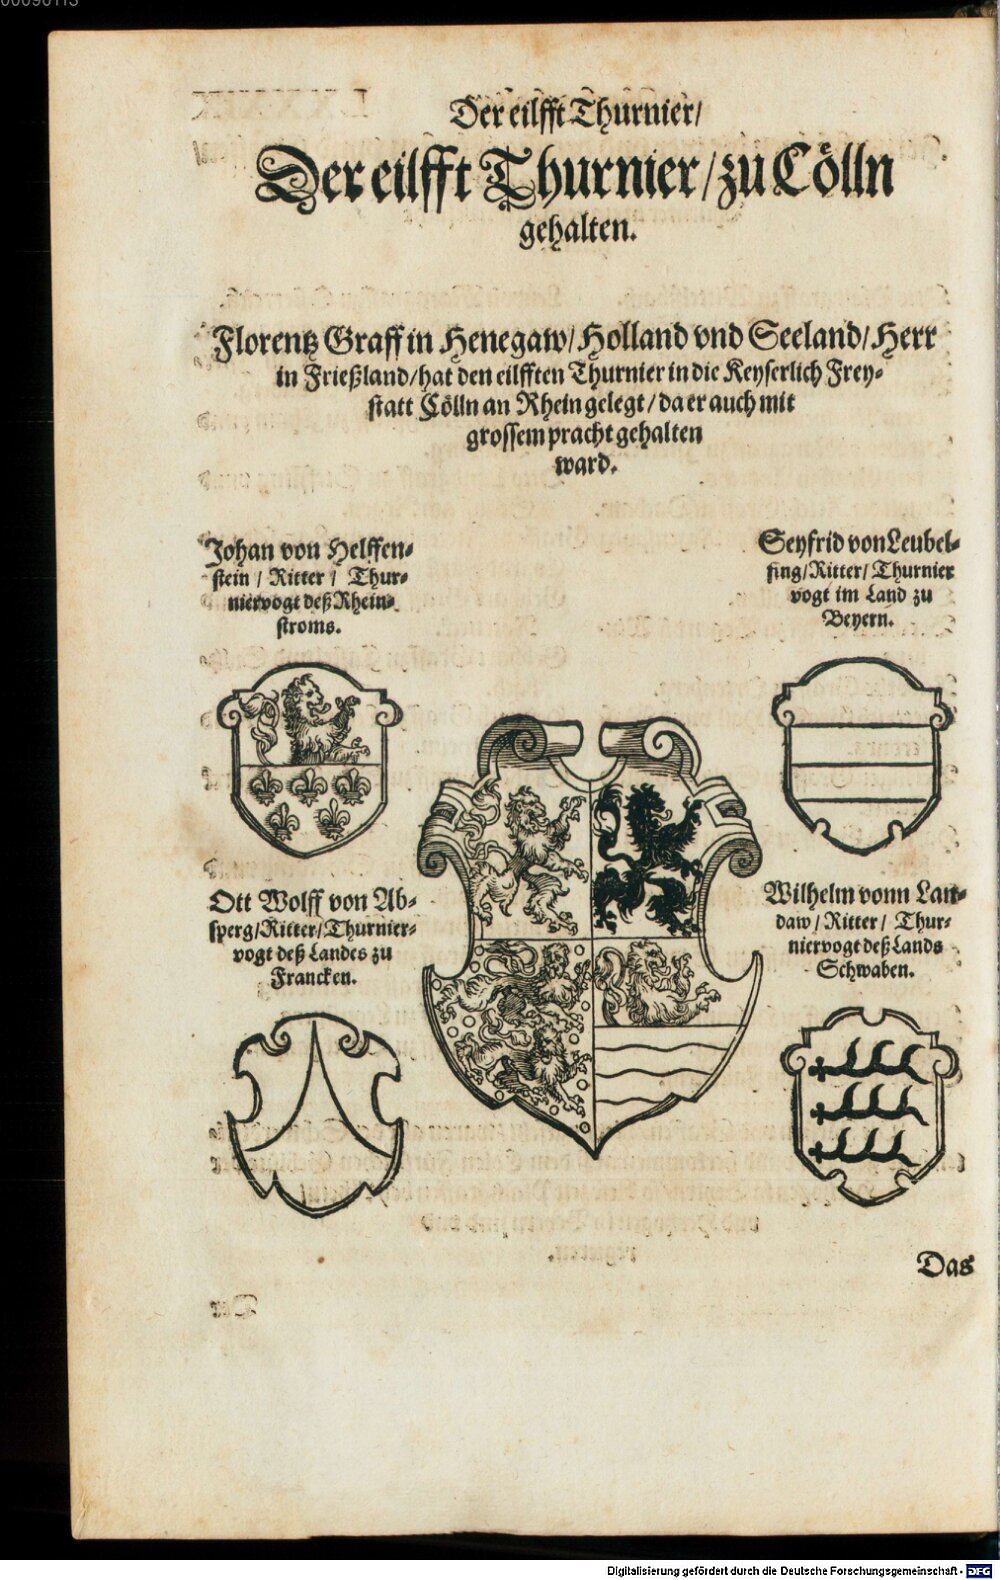 Der eilfft Thurnier/
Der eilfft Thurnier/zu Cölln
gehalten.
Florentz Graff in Henegaw/Holland vnd Seeland/Herr
in Frießland/hat den eilfften Thurnier in die Keyserlich Frey-
statt Cölln an Rhein gelegt/da er auch mit
grossem pracht gehalten
ward.
Johan von Helffen-
stein/Ritter/Thur-
niervogt deß Rhein-
stroms.
Seyfrid von Leubel-
fing/Ritter/Thurnier
vogt im Land zu
Beyern.
Ott Wolff von Ab-
sperg/Ritter/Thurnier-
vogt deß Landes zu
Francken.
Wilhelm vonn Lan-
daw/Ritter/Thur-
niervogt deß Lands
Schwaben.
Das
Digitalisierung gefördert durch die Deutsche Forschungsgemeinschaft - DFG